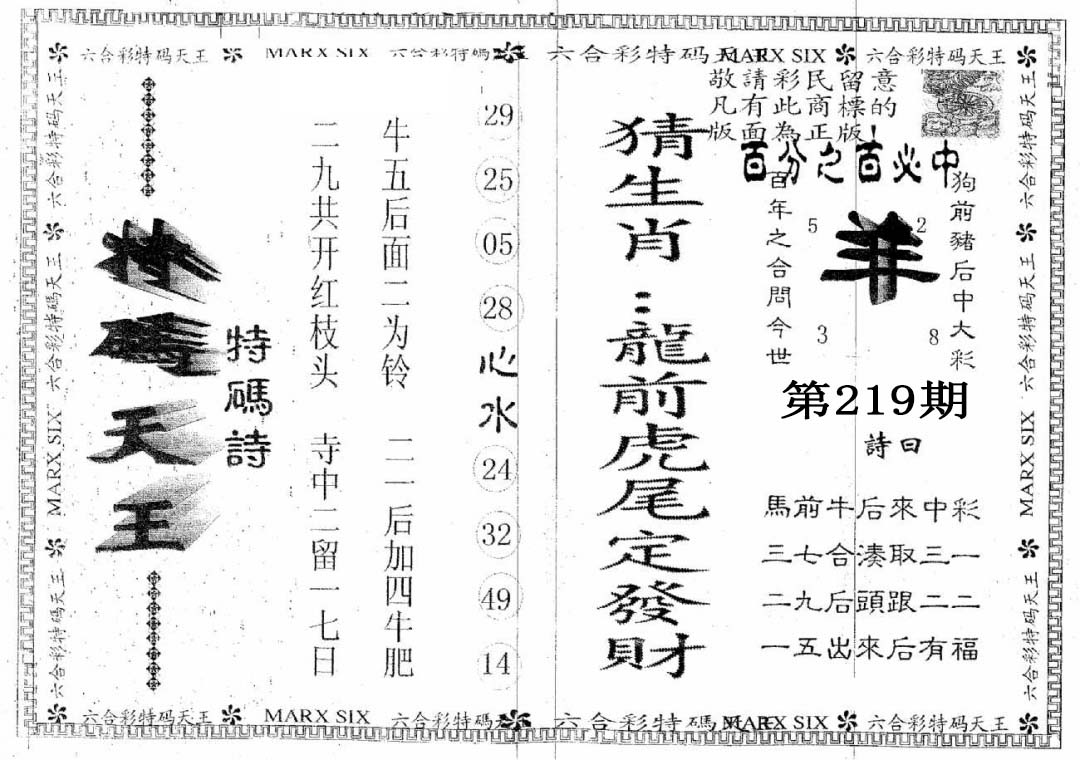 六合彩特码天王 MARX SIX 六合彩特碼天王 六合彩特码天王 MARX SIX 六合彩特码天王
敬請彩民留意
凡有此商標的
版面為正版!
百分之百必中
狗前豬后中大彩
羊
5 2
3 8
百年之合問今世
第219期
詩曰
馬前牛后來中彩
三七合湊取三一
二九后頭跟二二
一五出來后有福
猜生肖：龍前虎尾定發財
29
25
05
28
心水
24
32
49
14
牛五后面二为铃 二一后加四牛肥
二九共开红枝头 寺中二留一七日
特碼詩
特碼天王
六合彩特码天王 MARX SIX 六合彩特碼天王
六合彩特码天王 六合彩特码天王 MARX SIX 六合彩特码天王
六合彩特码天王 MARX SIX 六合彩特码天王 六合彩特碼 MARX SIX 六合彩特码天王